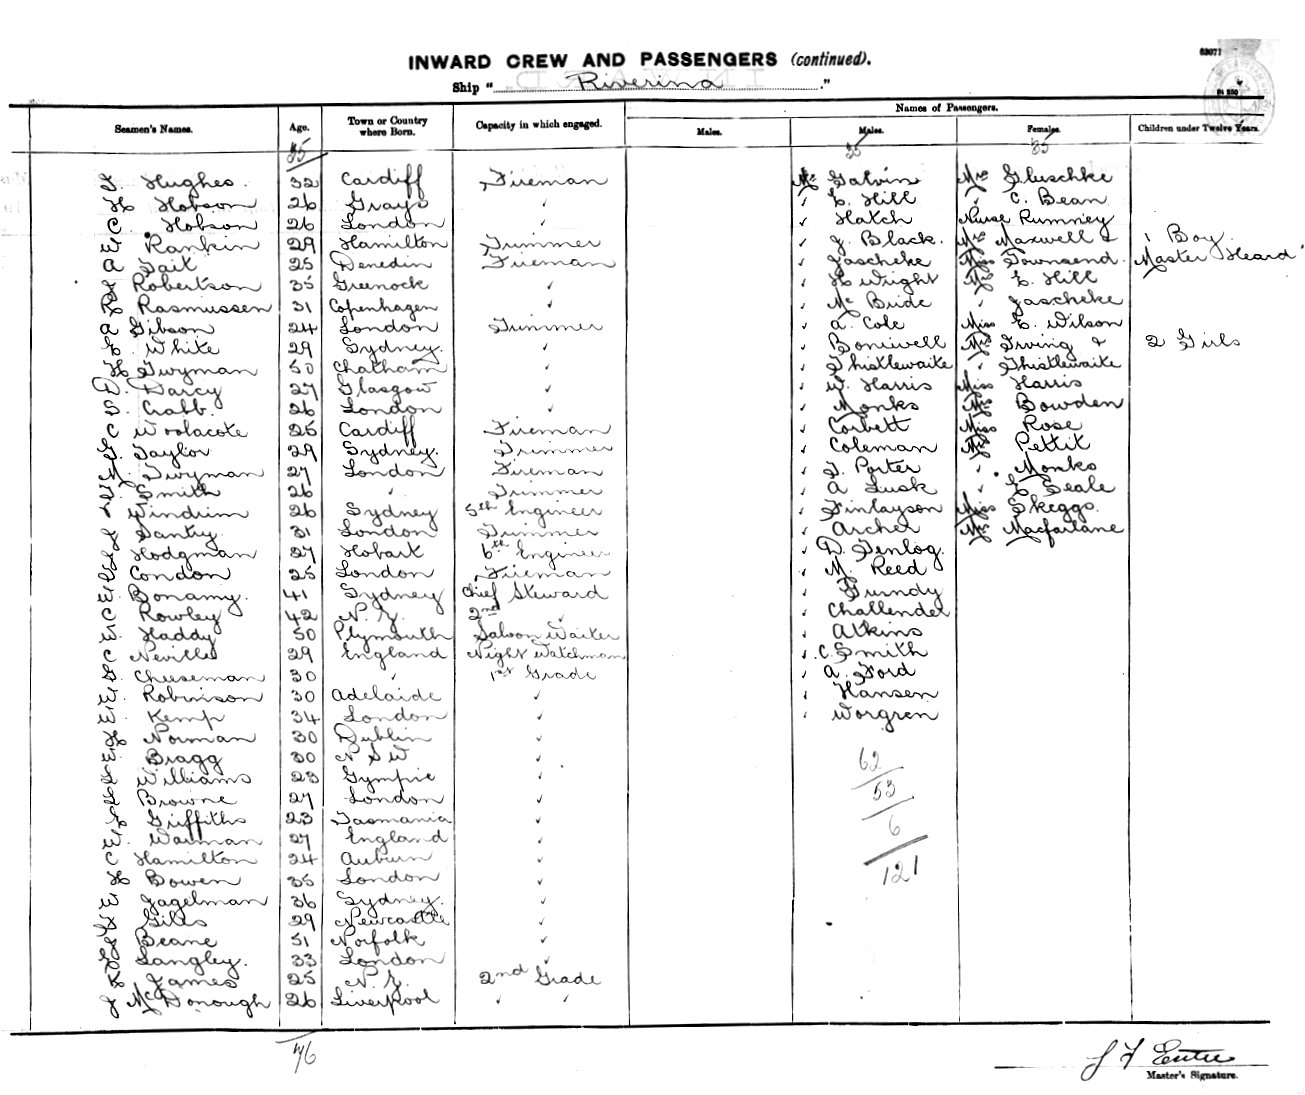 63071
INWARD CREW AND PASSENGERS (continued).
Ship "Riverina"
54 250
Names of Passengers.
Seamen's Names. Age. Town or Country where Born. Capacity in which engaged. Males. Males. Females. Children under Twelve Years.
35 35 35
T. Hughes. 32 Cardiff Fireman Mr Galvin Mrs Gluschke
H Hobson 26 Grays ✓ ✓ E. Hill ✓ C. Bean
C. Hobson 26 London ✓ ✓ Hatch Nurse Rumney
W Rankin 29 Hamilton Trimmer ✓ J. Black. Mrs Maxwell & 1 Boy
A Tait 25 Denedin Fireman ✓ Jascheke Miss Townsend. Master Heard
Robertson 35 Greenock ✓ ✓ H Wright Mrs E. Hill
Rasmussen 31 Copenhagen ✓ ✓ Mc Bride ✓ Jascheke
A Gibson 24 London Trimmer ✓ A. Cole Miss E. Wilson
White 29 Sydney. ✓ ✓ Boniwell Mrs Irving & 2 Girls
H Twyman 50 Chatham ✓ ✓ Thistlewaite ✓ Thistlewaite
D. Darcy 27 Glasgow ✓ ✓ W. Harris Miss Harris
Crabb. 26 London ✓ ✓ Monks Mrs Bowden
C Woolacote 25 Cardiff Fireman ✓ Corbett Miss Rose
Taylor 29 Sydney. Trimmer ✓ Coleman Mrs Pettit
Twyman 27 London Fireman ✓ T. Porter ✓ Monks
Smith 26 ✓ Trimmer ✓ A Lusk ✓ E Seale
Windrim 26 Sydney 5th Engineer ✓ Finlayson Miss Skeggs.
Santry. 31 London Trimmer ✓ Archer Mrs Macfarlane
Hodgman 27 Hobart 6th Engineer ✓ D. Fenlog.
Condon 25 London Fireman ✓ M. Reed
Bonamy. 41 Sydney Chief Steward ✓ Grundy
C Rowley 42 N. Z. 2nd ✓ ✓ Challender
E. Haddy 50 Plymouth Saloon Waiter ✓ Atkins
C Neville 29 England Night Watchman ✓ C. Smith
Cheeseman 30 ✓ 1st Grade ✓ A. Ford
W. Robinson 30 Adelaide ✓ ✓ Hansen
Kemp 34 London ✓ ✓ Worgren
Norman 30 Dublin ✓
Bragg 30 N S W ✓
Williams 23 Gympie ✓
Browne 27 London ✓
Griffiths 23 Tasmania ✓
W. Warman 27 England ✓
C Hamilton 24 Auburn ✓
H Bowen 35 London ✓
W Jagelman 36 Sydney. ✓
Giles 29 Newcastle ✓
Beane 51 Norfolk ✓
Langley. 33 London ✓
James 25 N. Z. 2nd Grade
J McDonough 26 Liverpool ✓ ✓
62
53
6
121
76
Master's Signature.